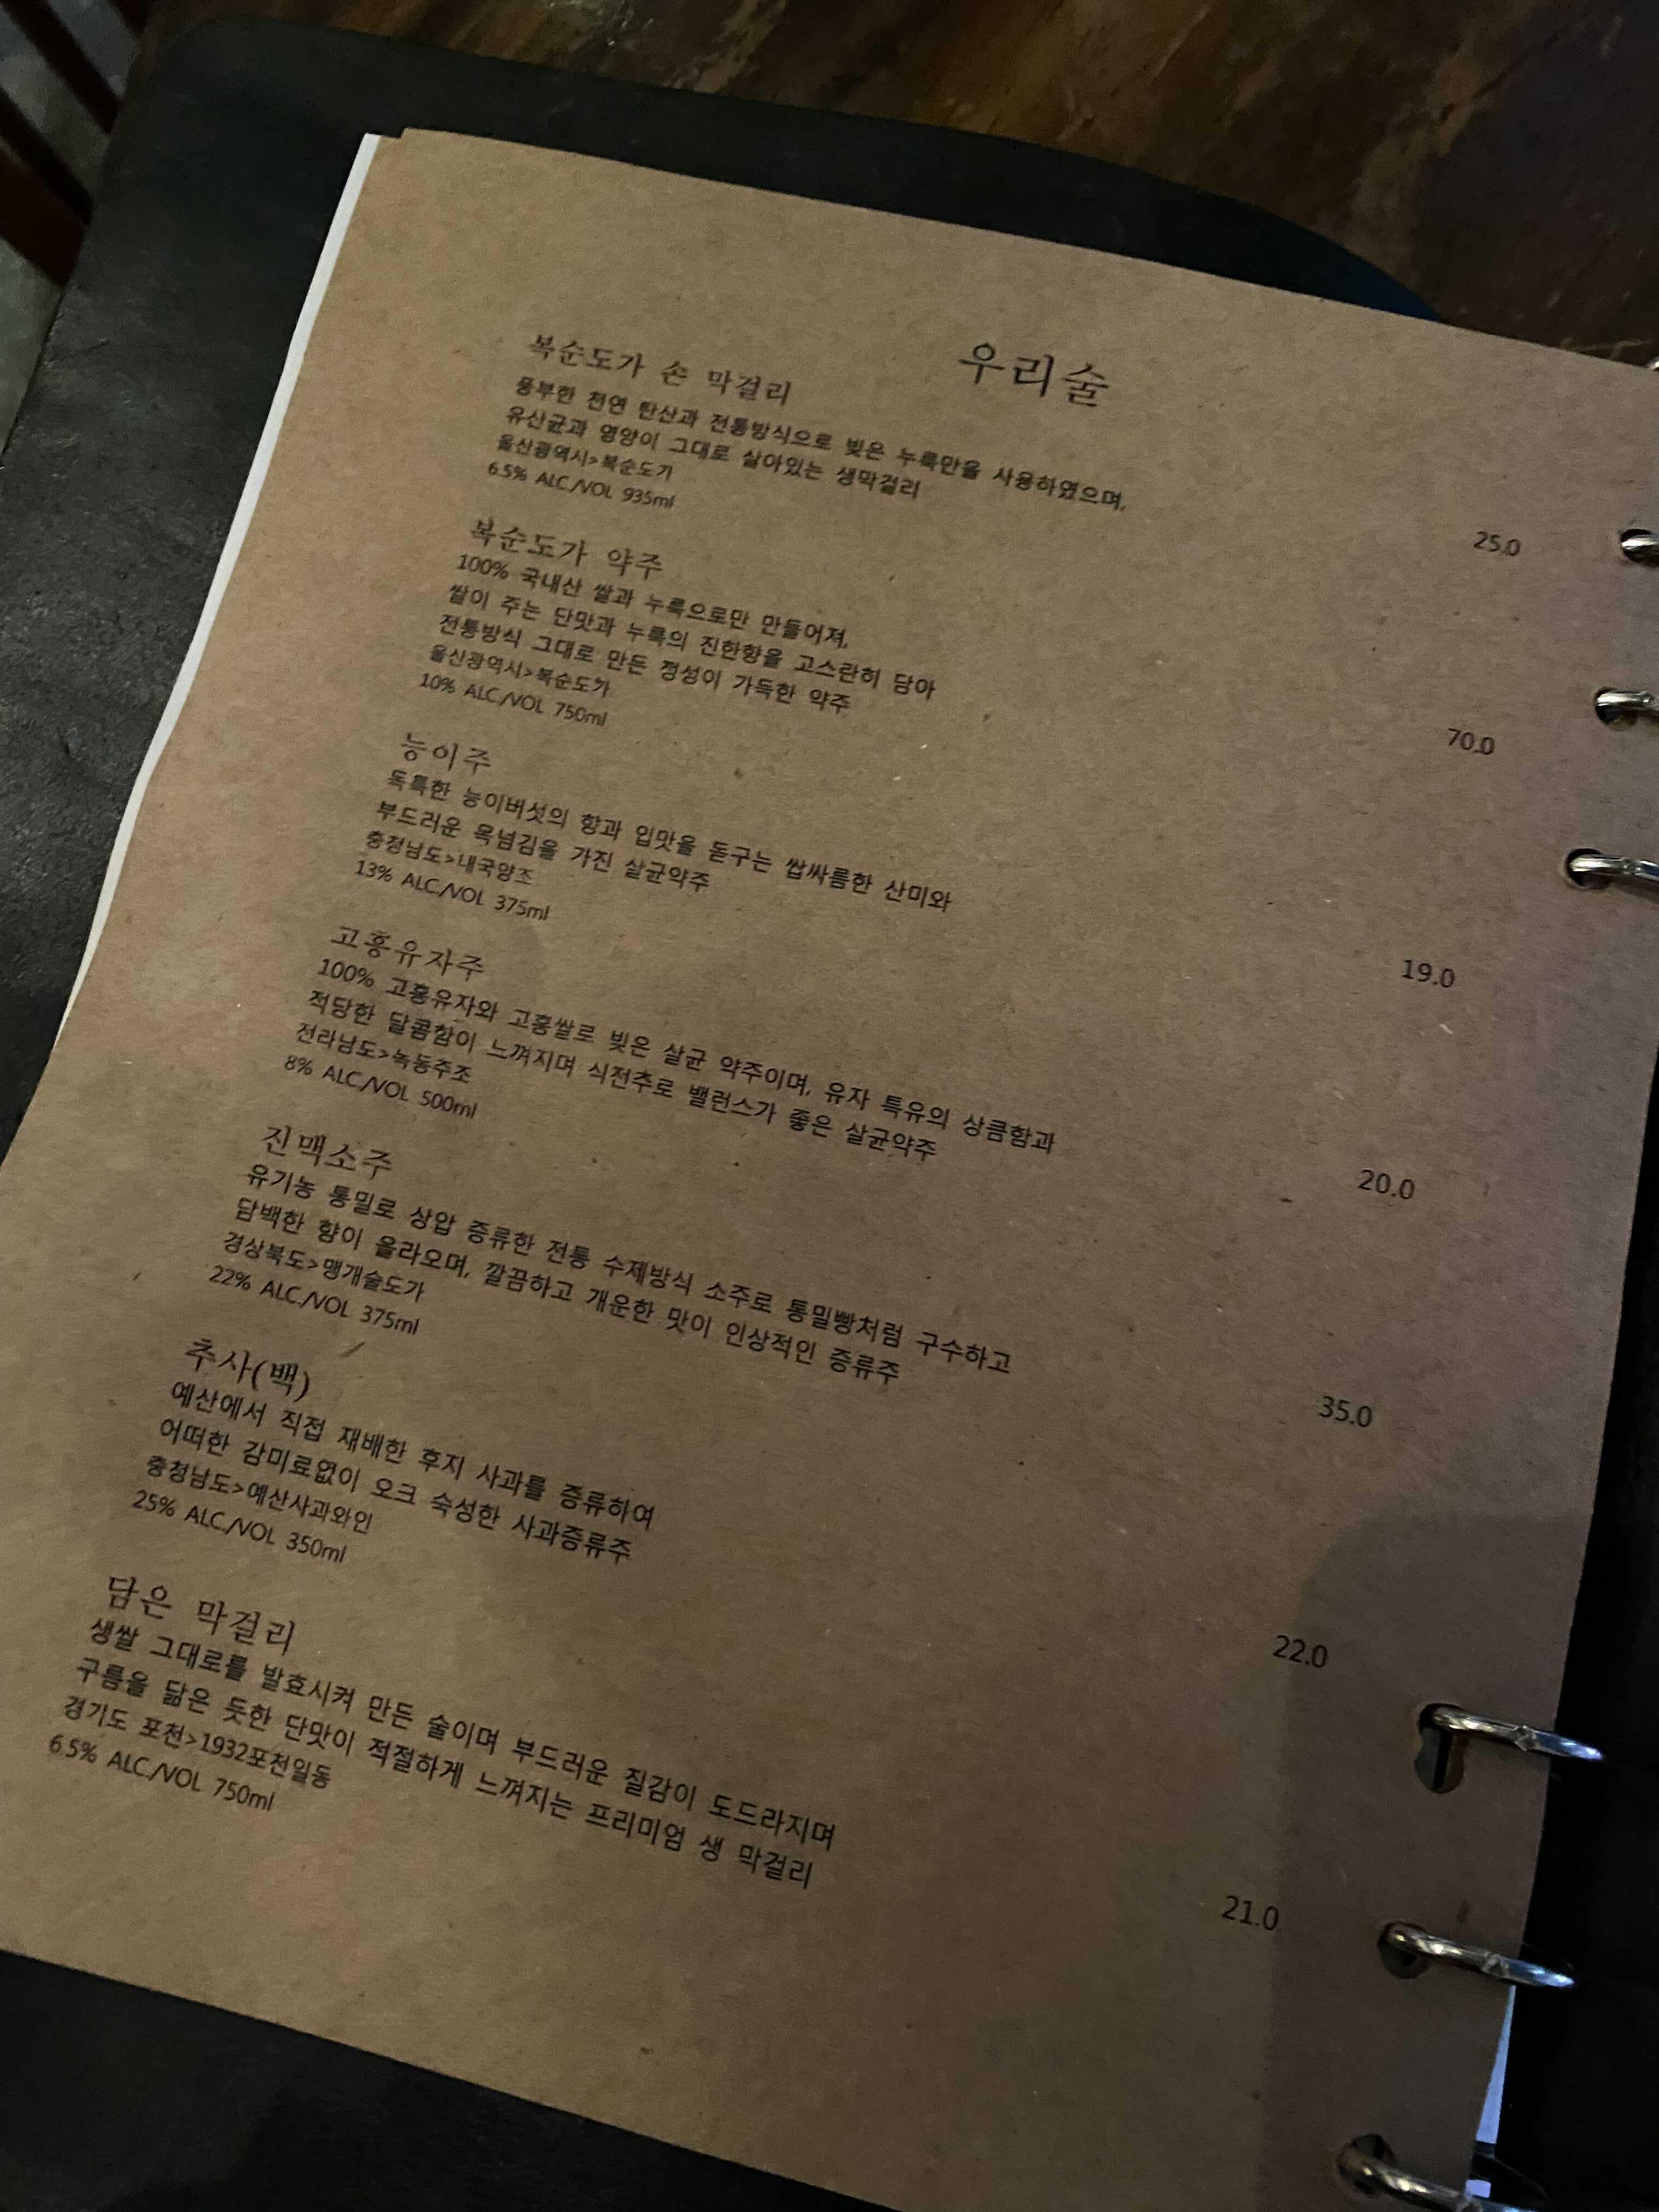 우리술
복순도가 손 막걸리
풍부한 천연 탄산과 전통방식으로 빚은 누룩만을 사용하였으며,
유산균과 영양이 그대로 살아있는 생막걸리
울산광역시>복순도가
6.5% ALC./VOL 935ml
25.0
복순도가 약주
100% 국내산 쌀과 누룩으로만 만들어져,
쌀이 주는 단맛과 누룩의 진한향을 고스란히 담아
전통방식 그대로 만든 정성이 가득한 약주
울산광역시>복순도가
10% ALC./VOL 750ml
70.0
능이주
독특한 능이버섯의 향과 입맛을 돋구는 쌉싸름한 산미와
부드러운 목넘김을 가진 살균약주
충청남도>내국양조
13% ALC./VOL 375ml
19.0
고흥유자주
100% 고흥유자와 고흥쌀로 빚은 살균 약주이며, 유자 특유의 상큼함과
적당한 달콤함이 느껴지며 식전주로 밸런스가 좋은 살균약주
전라남도>녹동주조
8% ALC./VOL 500ml
20.0
진맥소주
유기농 통밀로 상압 증류한 전통 수제방식 소주로 통밀빵처럼 구수하고
담백한 향이 올라오며, 깔끔하고 개운한 맛이 인상적인 증류주
경상북도>맹개술도가
22% ALC./VOL 375ml
35.0
추사(백)
예산에서 직접 재배한 후지 사과를 증류하여
어떠한 감미료없이 오크 숙성한 사과증류주
충청남도>예산사과와인
25% ALC./VOL 350ml
22.0
담은 막걸리
생쌀 그대로를 발효시켜 만든 술이며 부드러운 질감이 도드라지며
구름을 닮은 듯한 단맛이 적절하게 느껴지는 프리미엄 생 막걸리
경기도 포천>1932포천일동
6.5% ALC./VOL 750ml
21.0